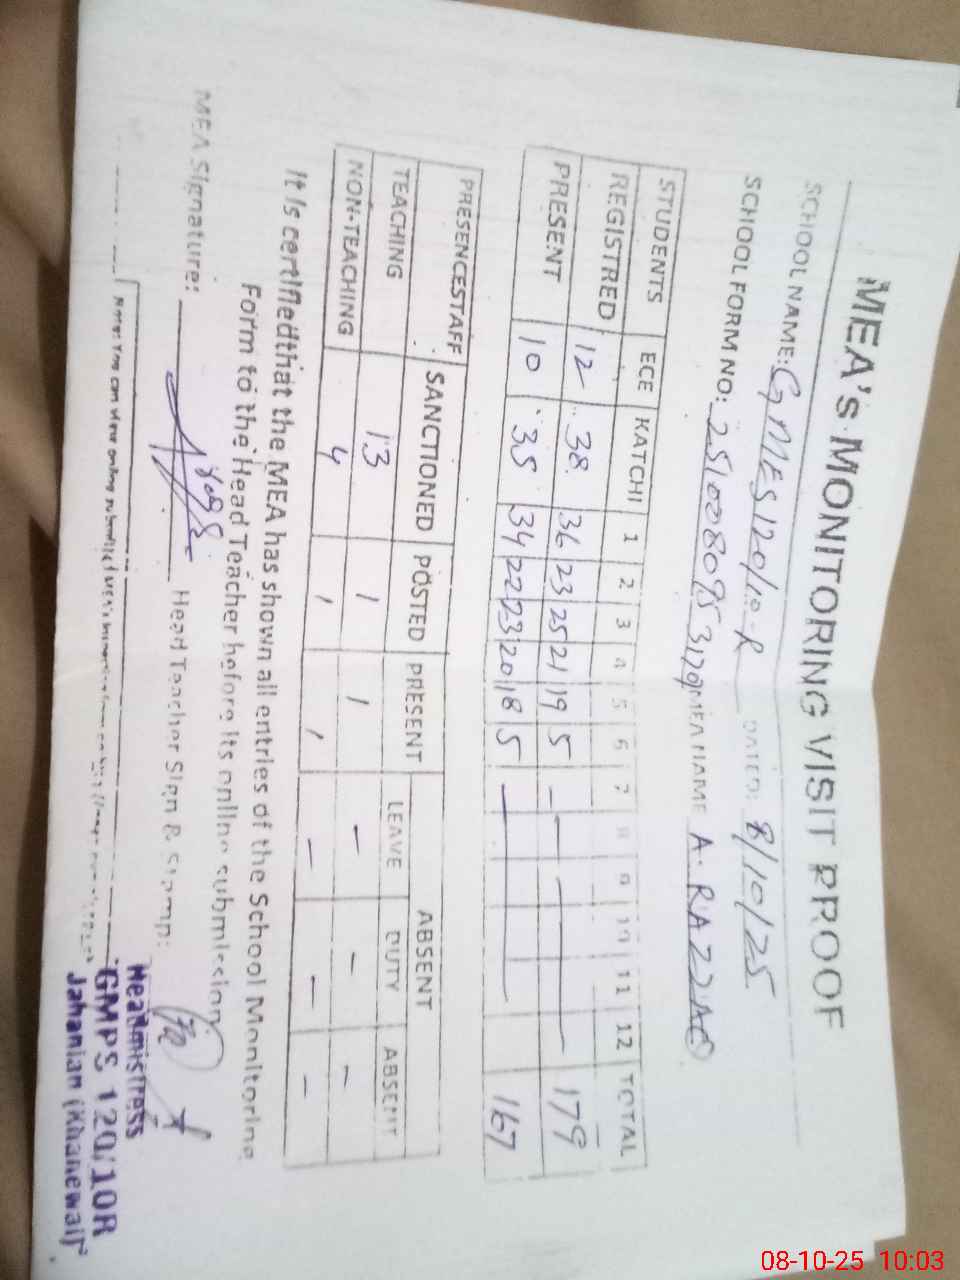 MEA'S MONITORING VISIT PROOF
SCHOOL NAME: GMES 120/10-R DATED: 8/10/25
SCHOOL FORM NO: MEA NAME A. RAZZAQ
STUDENTS ECE KATCHI 1 2 3 4 5 6 7 8 9 10 11 12 TOTAL
REGISTRED 12 38 36 23 25 21 19 5 - - - 179
PRESENT 10 35 34 22 23 20 18 5 — 167
PRESENCESTAFF SANCTIONED POSTED PRESENT ABSENT
LEAVE DUTY ABSENT
TEACHING 13 1 1 - - -
NON-TEACHING 4 , , - - -
It is certifiedthat the MEA has shown all entries of the School Monitoring
Form to the Head Teacher before its online submission
MEA Signature: Head Teacher Sign & Stamp:
Headmistress
GMPS 120/10R
Jahanian (Khanewal)
Note: You can view online submitted
08-10-25 10:03